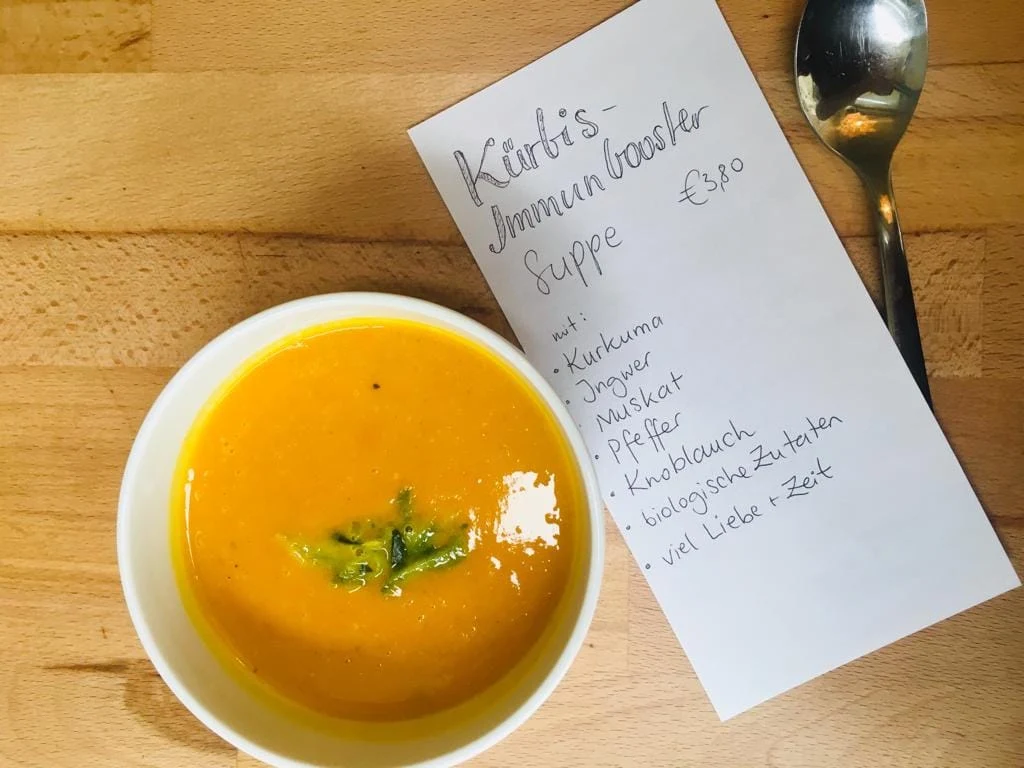 Kürbis-
Immunbooster
Suppe €3,80
mit:
• Kurkuma
• Ingwer
• Muskat
• Pfeffer
• Knoblauch
• biologische Zutaten
• viel Liebe + Zeit